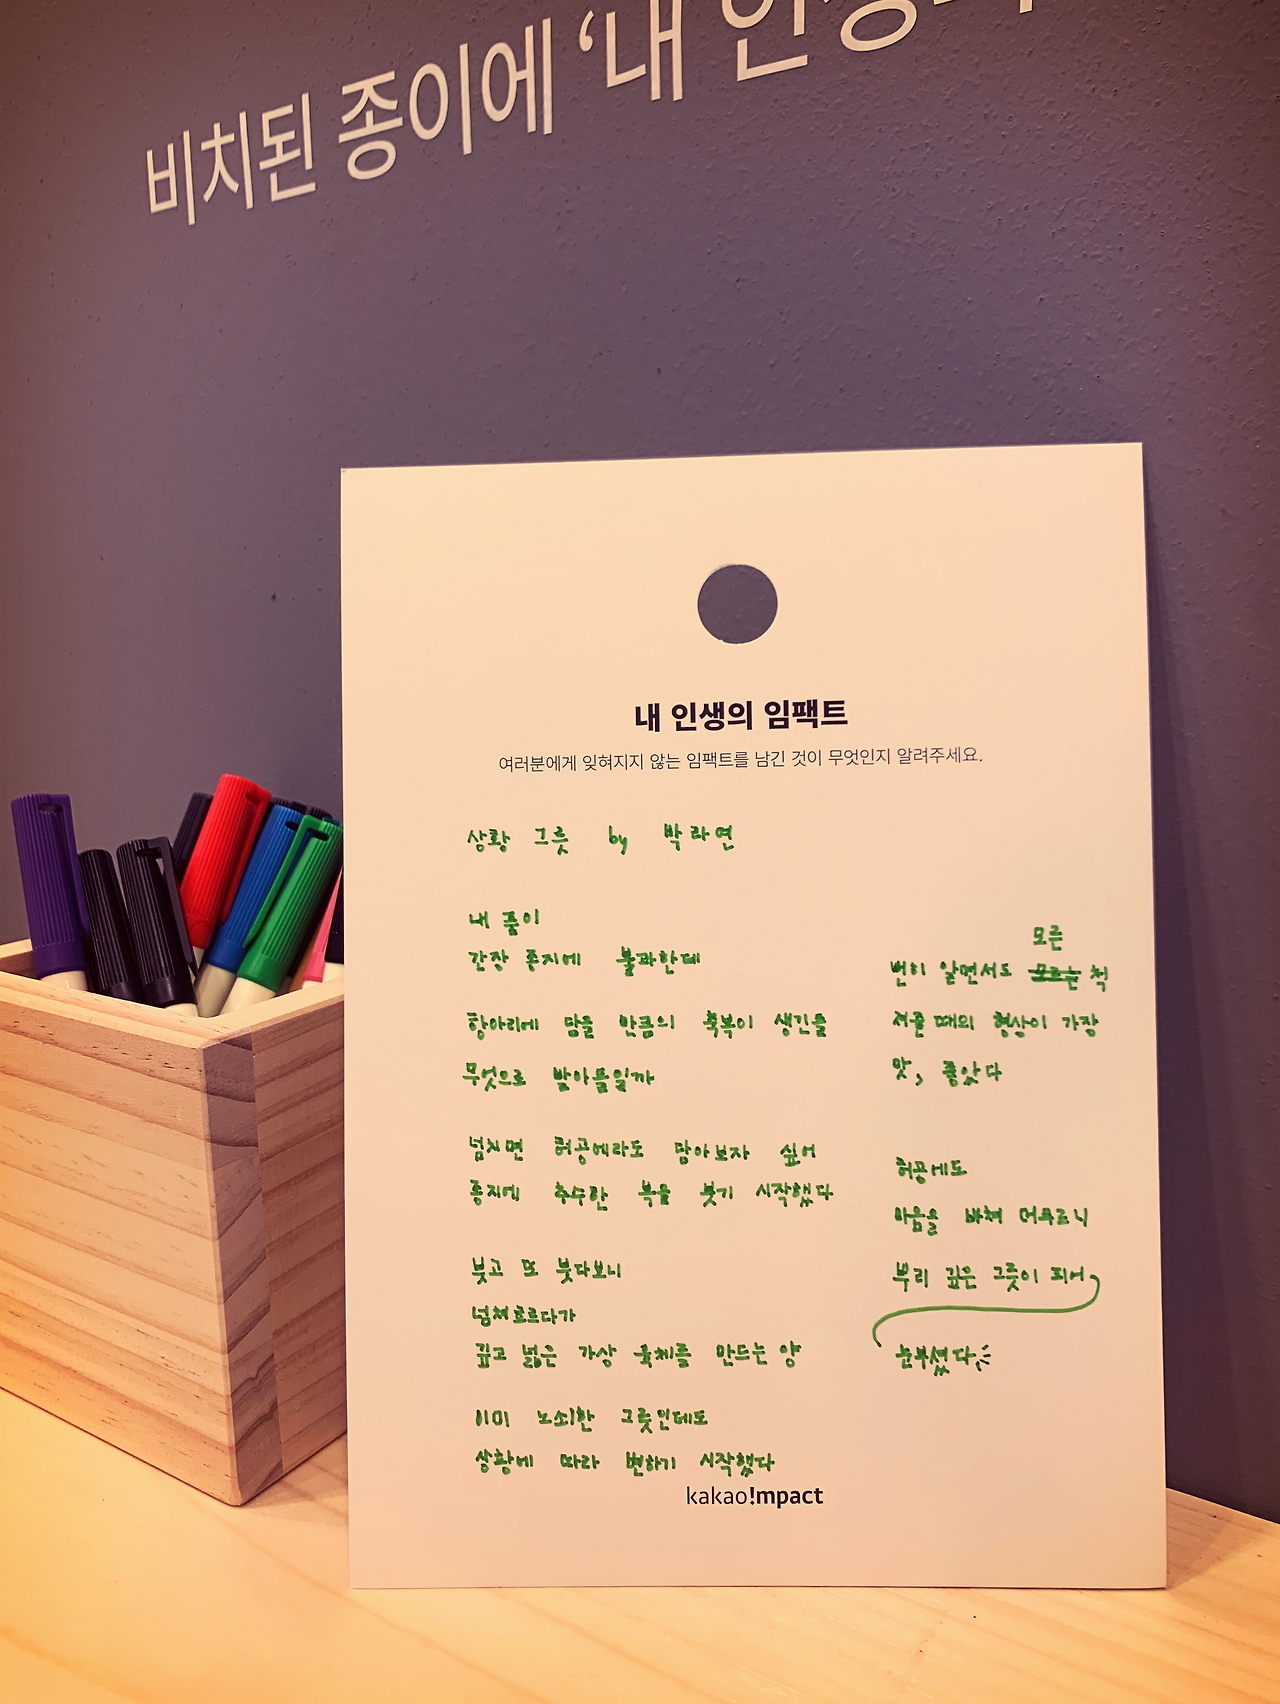 비치된 종이에 ‘내 인생의
내 인생의 임팩트
여러분에게 잊혀지지 않는 임팩트를 남긴 것이 무엇인지 알려주세요.
상황 그릇 by 박라연
내 품이
간장 종지에 불과한데
항아리에 담을 만큼의 축복이 생긴들
무엇으로 받아들일까
넘치면 허공에라도 담아보자 싶어
종지에 추수한 복을 붓기 시작했다
붓고 또 붓다보니
넘쳐흐르다가
깊고 넓은 가상 육체를 만드는 양
이미 노쇠한 그릇인데도
상황에 따라 변하기 시작했다
모른
뻔히 알면서도 모르는 척
져줄 때의 형상이 가장
맛, 좋았다
허공에도
마음을 바쳐 머무르니
뿌리 깊은 그릇이 되어
눈부셨다
kakao!mpact